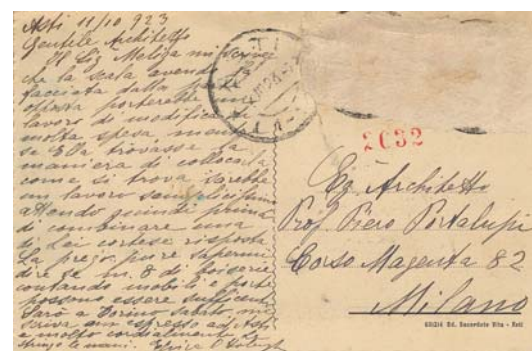 Asti 11/10 923
Gentile Architetto
Il Sig. Meliga mi scrive
che la scala avendo la
facciata dalla parte
opposta porterebbe un
lavoro di modifica di
molta spesa, mentre
se Ella trovasse la
maniera di collocarla
come si trova sarebbe
un lavoro semplicissimo
attendo quindi prima
di combinare una
di Lei cortese risposta
La prego pure sapermi
dire se m. 8 di boiserie
contando mobile e porte
possono essere sufficienti
Sarò a Torino sabato, mi
scriva un espresso ad Asti
e molto cordialmente Le
stringo le mani.
2632
Eg. Architetto
Prof. Piero Portaluppi
Corso Magenta 82
Milano
Ed. Sacerdote Vita - Asti